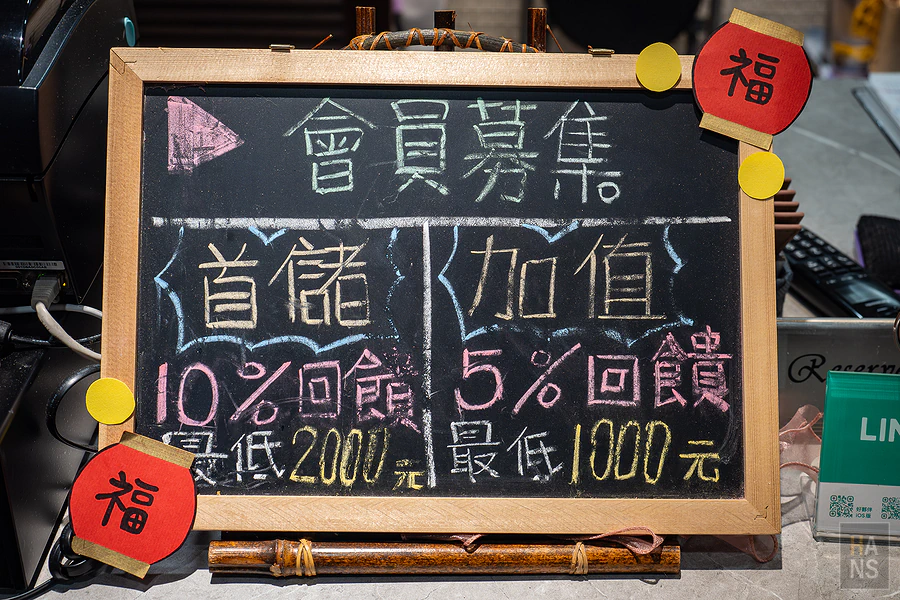 福
會員募集
首儲
10%回饋
最低2000元
加值
5%回饋
最低1000元
福
LIN
好夥伴
iOS版
HANS